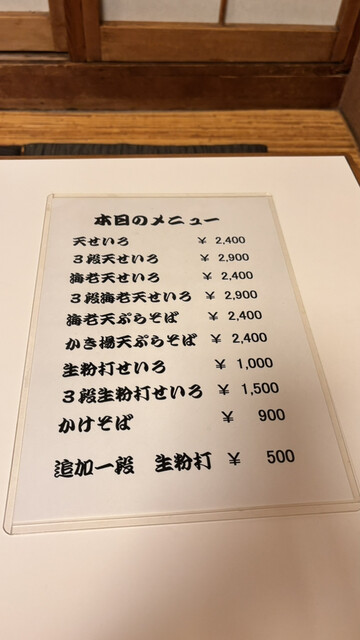 本日のメニュー
天せいろ ￥ 2,400
３段天せいろ ￥ 2,900
海老天せいろ ￥ 2,400
３段海老天せいろ ￥ 2,900
海老天ぷらそば ￥ 2,400
かき揚天ぷらそば ￥ 2,400
生粉打せいろ ￥ 1,000
３段生粉打せいろ ￥ 1,500
かけそば ￥ 900
追加一段 生粉打 ￥ 500